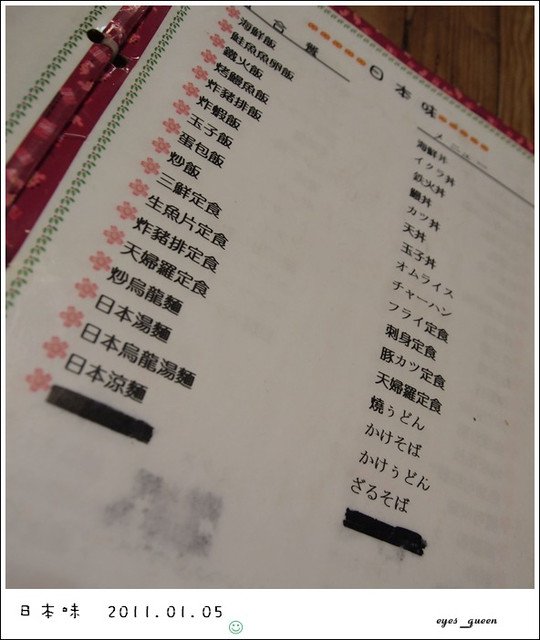 日本味
メニュー
海鮮飯
鮭魚魚卵飯
鐵火飯
烤鰻魚飯
炸豬排飯
炸蝦飯
玉子飯
蛋包飯
炒飯
三鮮定食
生魚片定食
炸豬排定食
天婦羅定食
炒烏龍麵
日本湯麵
日本烏龍湯麵
日本涼麵
海鮮丼
イクラ丼
鉄火丼
鰻丼
カツ丼
天丼
玉子丼
オムライス
チャーハン
フライ定食
刺身定食
豚カツ定食
天婦羅定食
燒うどん
かけそば
かけうどん
ざるそば
日本味 2011.01.05
eyes_queen